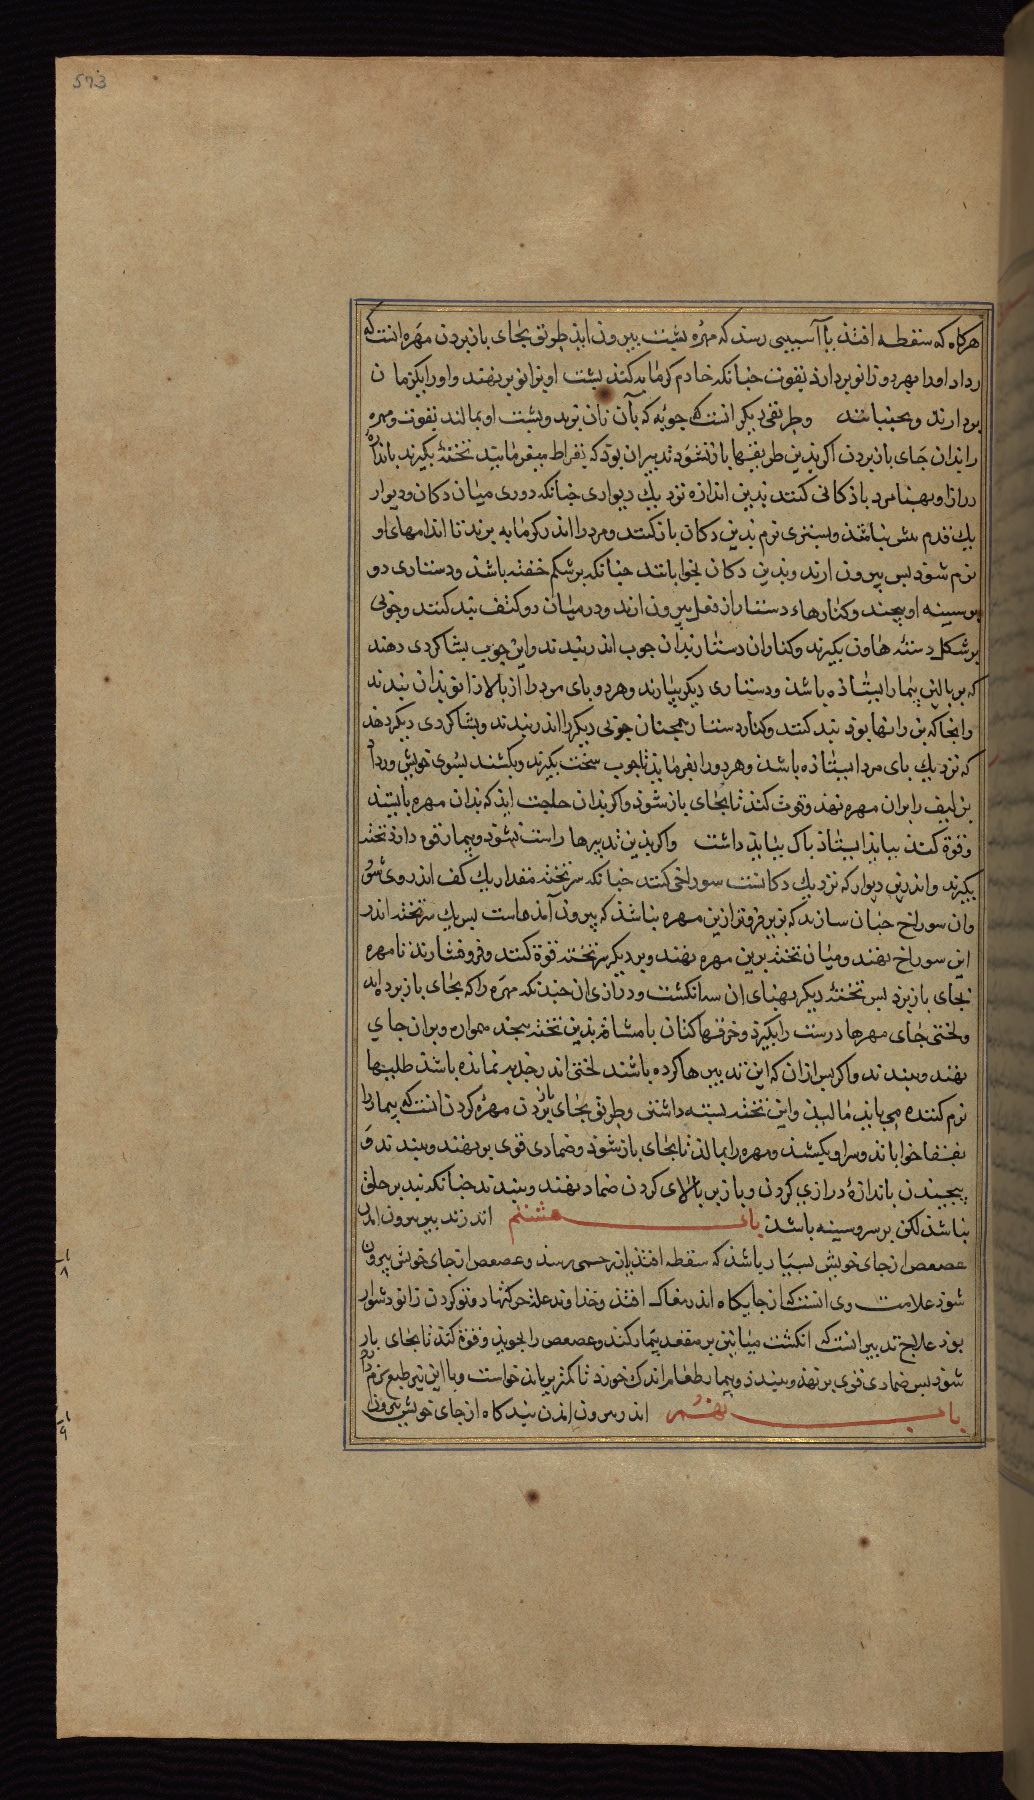 573
هرکاه که سقطه افتذ یا آسیبی رسد که مهرۀ بشت بیرون ایذ طریق بجای باز بردن مهره انست که
را او را بهر دو زانو بردارذ بقوت جنانکه خادم کرمابه کند بشت او بزانو برنهند و او را یکزمان
بردارند و بجنبانند و طریقی دیکر انست که جوبه که بآن نان برند و بشت او بمالند بقوت و مهره
را بدان جای باز بردن اکر بدین طریقها باز نشوذ تدبیر ان بوذ که بقراط میفرماید تختۀ بکیرند باندازۀ
درازا و بهنا مرد یا دکانی کنند بدین اندازه نزدیك دیواری جنانکه دوری میان دکان و دیوار
یك قدم بیش نباشذ و بستری نرم بدین دکان باز کنند و مرد را اندر کرمابه برند تا اندامهای او
نرم شوذ بس بیرون ارند و بدین دکان بخوابانند جنانکه بر شکم خفته باشذ و دستاری دو
بر سینه او بیجند و کنارهاء دستار از بغل بیرون ارند و در میان دو کتف بند کنند و جوبی
بر شکل دستۀ هاون بکیرند و کناران دستار بدان جوب اندر بندند و این جوب بشاکردی دهند
که بر بالین بیمار ایستاذه باشذ و دستاری دیکر بیارند و هر دو بای مرد را از بالا زانو بدان بندند
و انجا که بن رانها بوذ بند کنند و کنار دستار همجنان جوبی دیکر را اندر بندند و بشاکردی دیکر دهند
که نزدیك بای مرد ایستاذه باشذ و هر دو را بفرمایذ تا جوب سخت بکیرند و بکشند بسوی خویش و مرد
بزانو کف را بران مهره نهذ و قوت کند تا بجای باز شوذ و اکر بدان حاجت ایذ که بدان مهره بایستد
و قوة کند بیایذ ایستاذ باک نبایذ داشت واکر بدین تدبیرها راست نشوذ و بیمار قوه دارذ تخته
بکیرند و اندرین دیوار که نزدیك دکانست سوراخی کنند جنانکه سر تخته مقدار یك کف اندر وی شود
وان سوراخ جنان سازند که بزیر فروتر ازین مهره نباشذ که بیرون آمذهاست بس یك سر تخته اندر
این سوراخ نهند و میان تخته برین مهره نهند و بر دیکر سر تخته قوة کنند و فرو فشارند تا مهره
بجای باز برذ بس تختۀ دیکر بهنای ان سه انکشت و درازی ان جندانکه مهره را که بجای باز برده اند
و لختی جای مهرها درست را بکیرذ و خرقها کتان یا مشاقه بدین تخته بیجند هموار و بران جای
نهند و ببندند واکر بس ازان که این تدبیرها کرده باشند لختی اندر خدبه بمانده باشذ طلیها
نرم کننده می بایذ مالیذ واین تخته بسته داشتن و طریق بجای باز بردن مهرۀ کردن انست که بیمار را
بقفا خوابانند و سر او بکشند و مهره را بمالند تا بجای باز شوذ و ضمادی قوی برنهند و ببندند و
بیجیدن باندازۀ درازی کردن و بازین بالای کردن ضماد نهند و ببندند جنانکه بند بر حلق
نباشذ لکن بر سر و سینه باشذ باب هشتم اندر تدبیر بیرون امدن
عصعص از جای خویش بسیار باشذ که سقطه افتذ یا زخمی رسذ و عصعص از جای خویش بیرون
شوذ علامت وی انست که ان جایکاه اندر مغاک افتذ و خذاوند علة حرکتها و دوتو کردن زانو دشوار
بوذ علاج تدبیر انست که انکشت میانین بر مقعد بیمار کنند و عصعص را بجویذ و قوة کند تا بجای باز
شوذ بس ضمادی قوی برنهذ و ببندذ و بیمار طعام اندک خورد تا کمتر برباید خواست و با این نیز طبع نرم دارد
باب نهم اندر بیرون امذن بند کاه از جای خویش بیرون
باب ۸
باب ۹